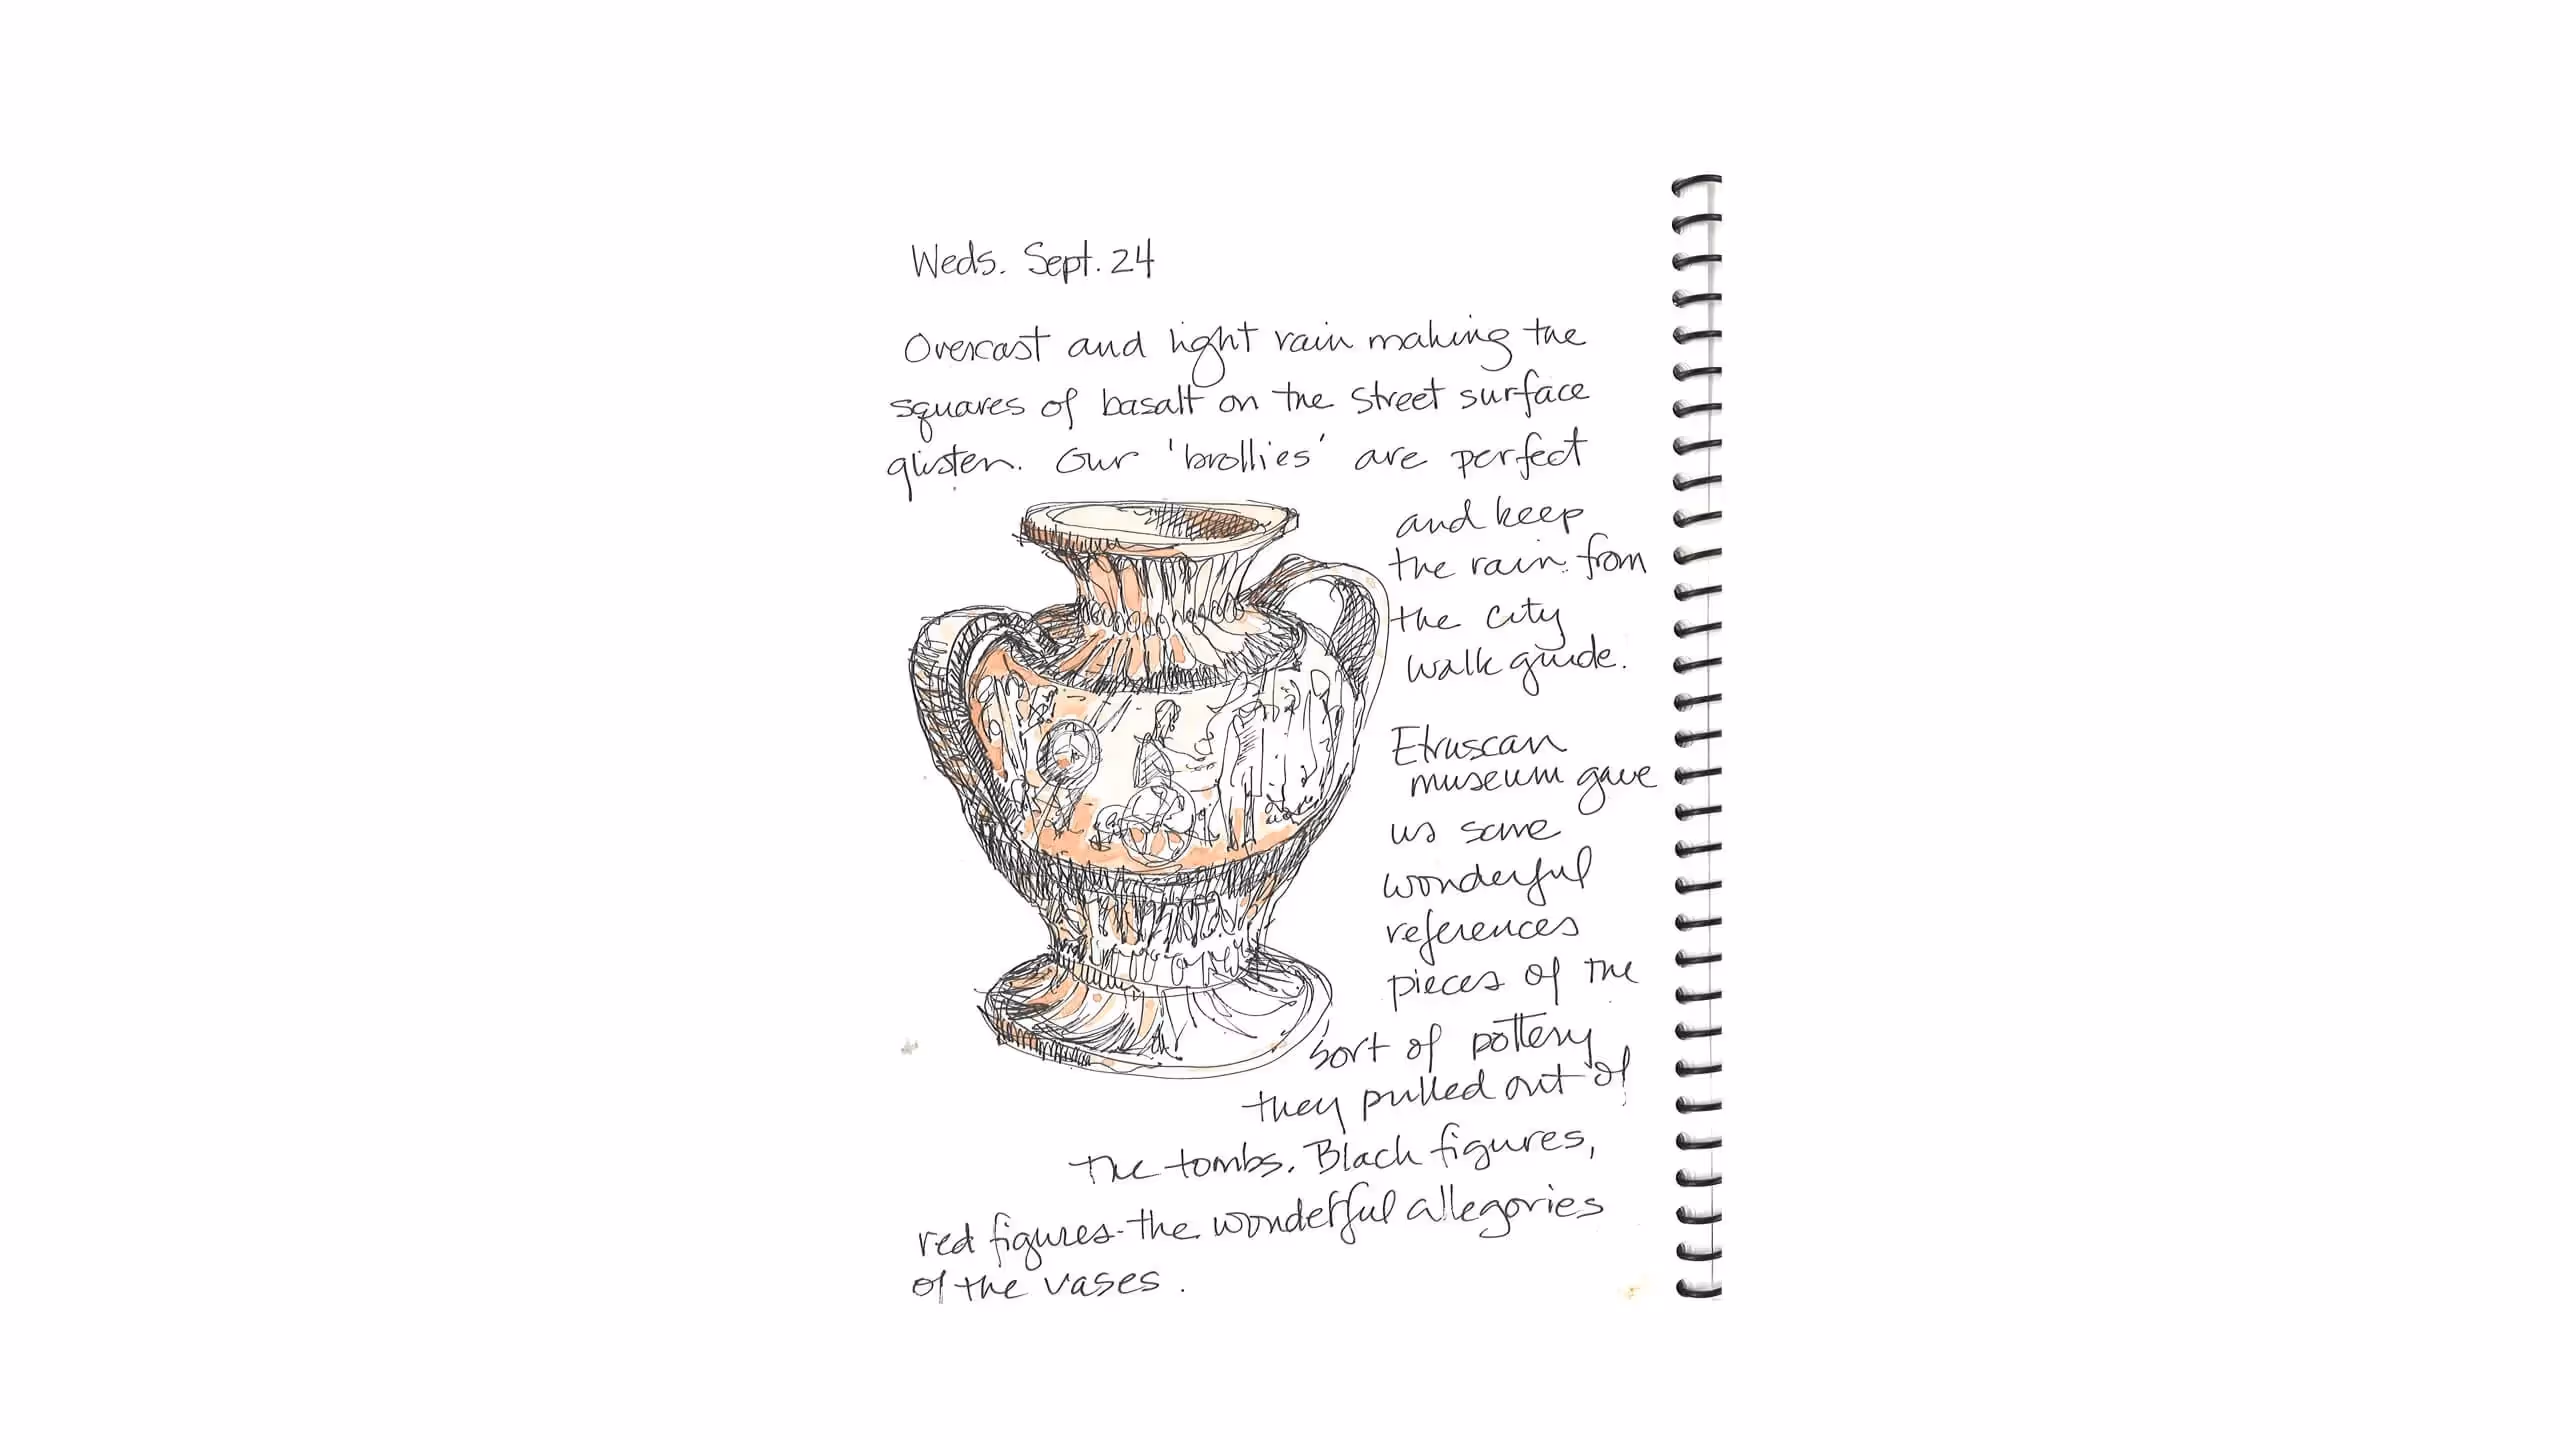 Weds. Sept. 24
Overcast and light rain making the
squares of basalt on the street surface
glisten. Our 'brollies' are perfect
and keep
the rain from
the city
walk guide.
Etruscan
museum gave
us some
wonderful
references
pieces of the
sort of pottery
they pulled out of
the tombs. Black figures,
red figures - the wonderful allegories
of the vases.